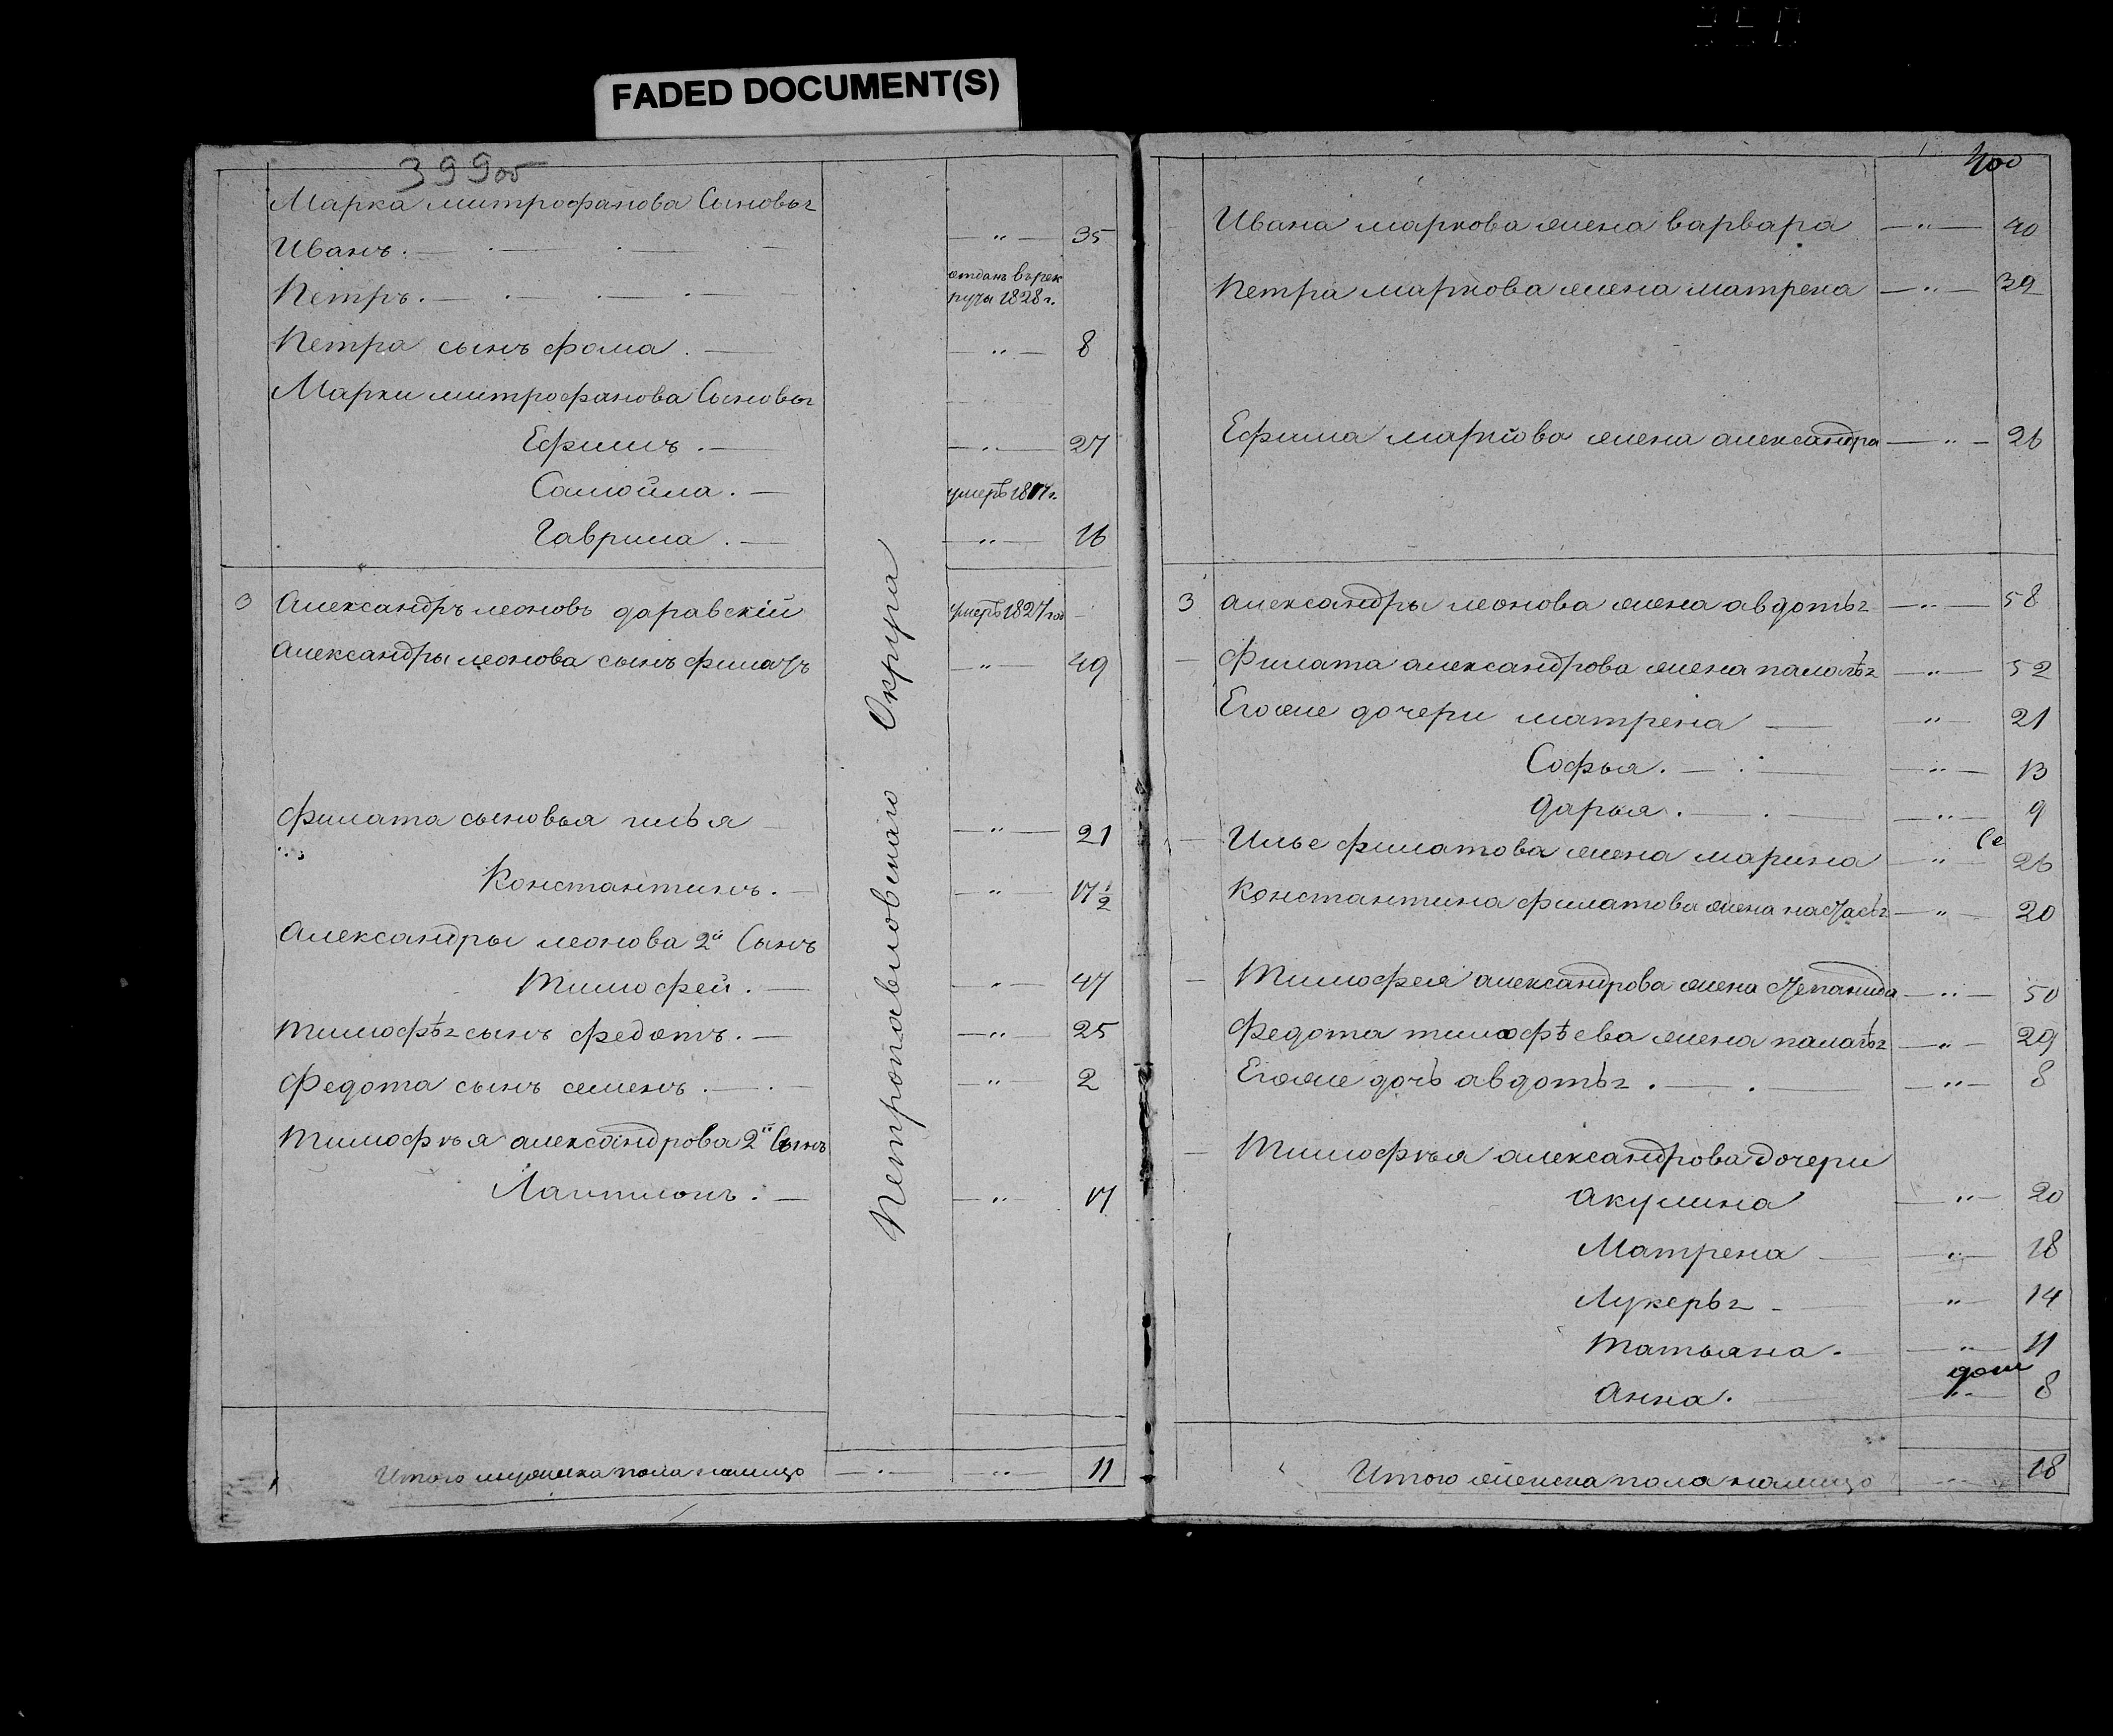 FADED DOCUMENT(S)
399об
Марка митрофанова Сыновьг
Иванъ. — " — 35
Петръ. — отданъ врек
руты 1828 г.
Петра сынъ фома. — " — 8
Марки митрофанова Сыновьг
Ефимъ. — " — 27
Самойла. — умеръ 18
Гаврила. — " — 16
3 Александръ леоновъ даравскiй умеръ 1827 год
Александры леонова сынъ филатъ — " — 49
Филата сыновья илья — " — 21
Константинъ. — " — 17 1/2
Александры леонова 2й Сынъ
Тимофей. — " — 47
Тимофѣг сынъ федотъ. — " — 25
Федота сынъ семенъ. — " — 2
Тимофѣя александрова 2й Сынъ
" — 17
Петропавловскаго Округа
Итого мужеска пола налицо — " — 11
400
Ивана маркова жена варвара — " — 40
Петра маркова жена матрена — " — 39
Ефима маркова жена александра — " — 26
3 александры леонова жена авдотьг — " — 58
Филата александрова жена палагѣг — " — 52
Егоже дочери матрена — " — 21
Софья. — " — 13
Дарья. — " — 9
Илье филатова жена марина — " — 26
Константина филатова жена настасьг — " — 20
Тимофея александрова жена степанида — " — 50
Федота тимофѣева жена палагѣг — " — 29
Егоже дочь авдотьг. — " — 8
Тимофѣя александрова дочери
акулина — " — 20
Матрена — " — 18
Лукерьг — " — 14
Татьяна. — " — 11
Анна. — " — 8
Итого женска пола налицо — " — 18